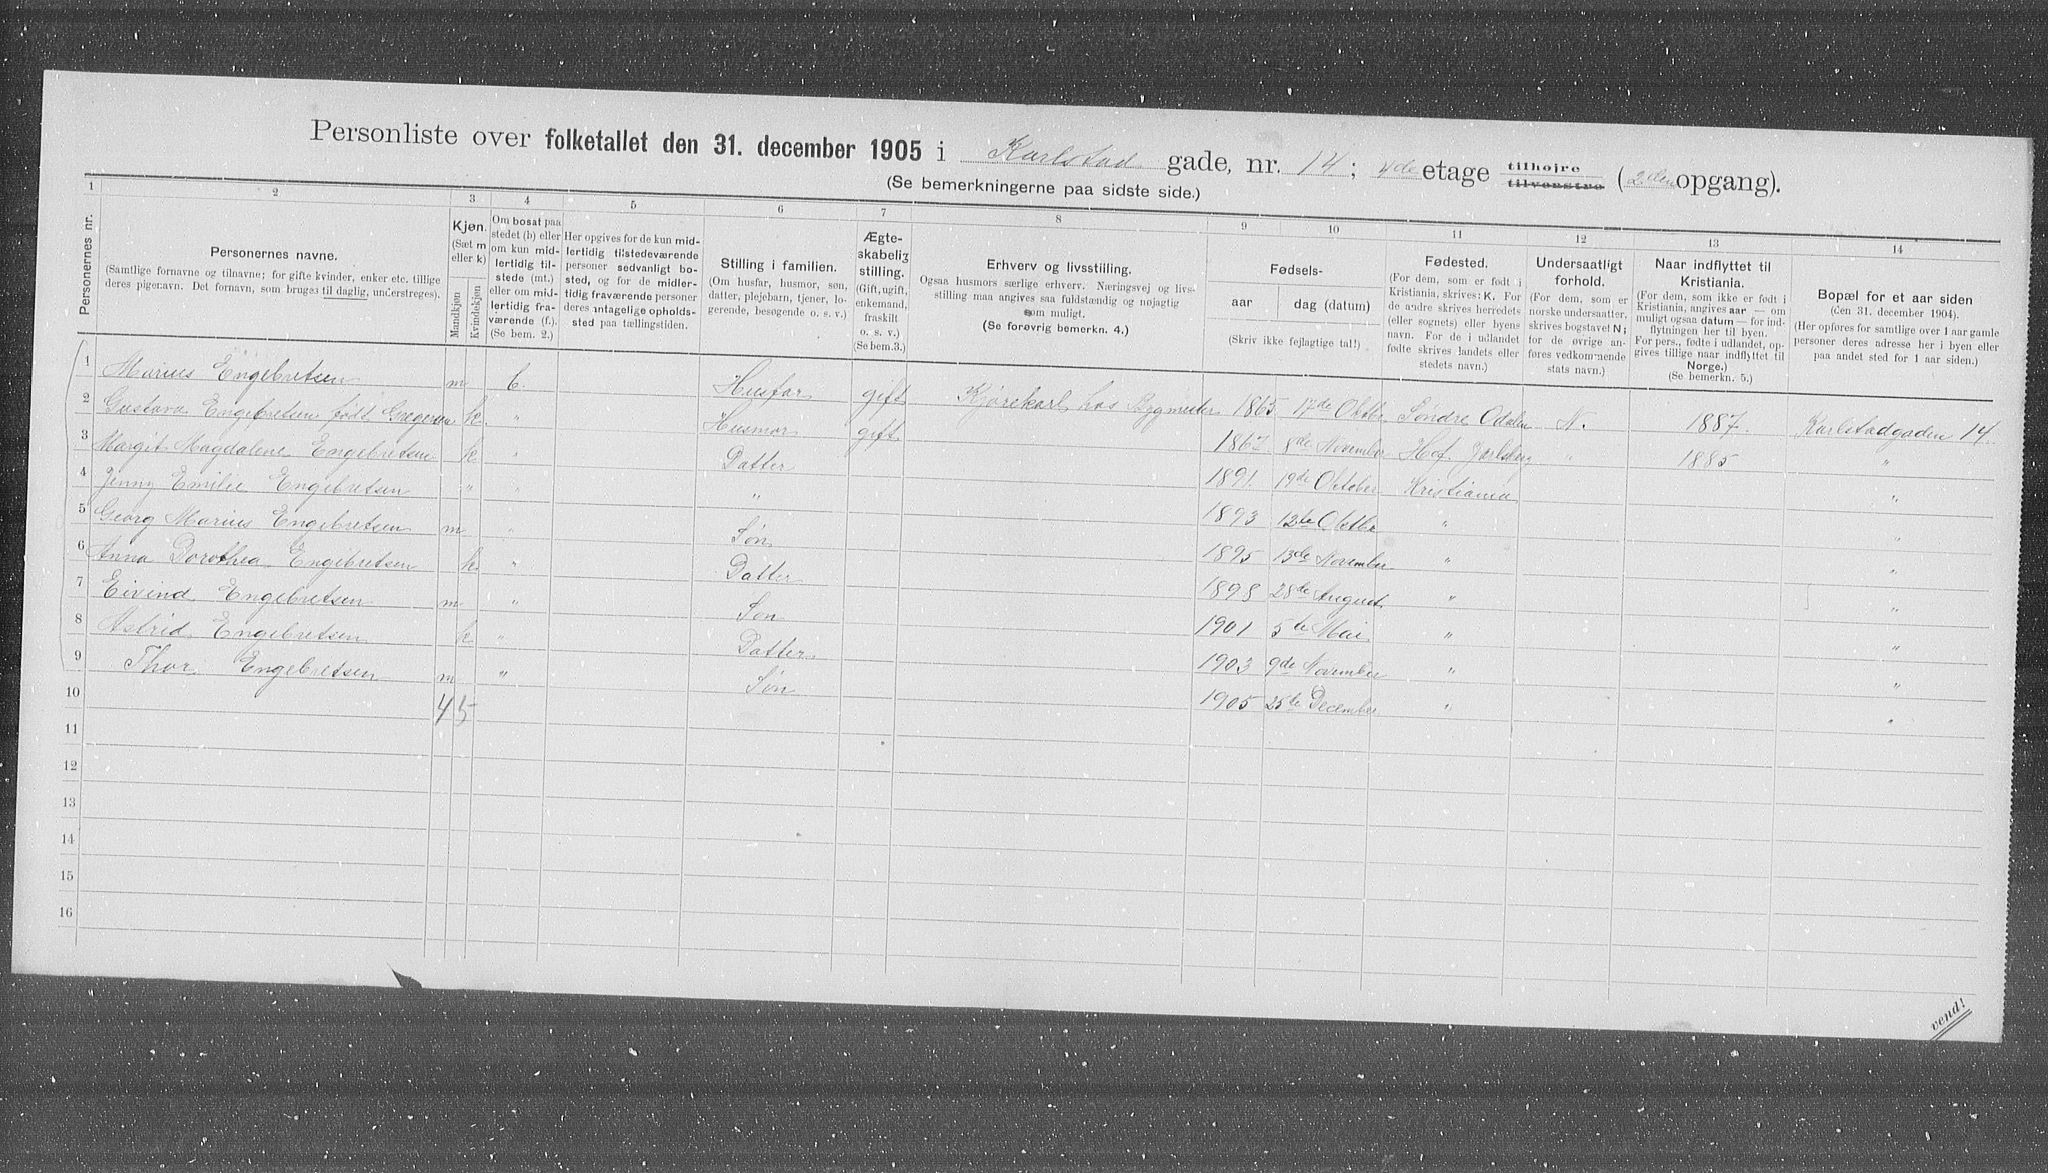 Personliste over folketallet den 31. december 1905 i Karlstad gade, nr. 14; 4de etage tilhøjre tilvenstre (2den opgang).
(Se bemerkningerne paa sidste side.)
1 2 3 4 5 6 7 8 9 10 11 12 13 14
Personernes nr.
Personernes navne.
(Samtlige fornavne og tilnavne; for gifte kvinder, enker etc. tillige
deres pigenavn. Det fornavn, som bruges til daglig, understreges).
Kjøn.
(Sæt m
eller k)
Mandkjøn
Kvindekjøn
Om bosat paa
stedet (b) eller
om kun mid-
lertidig til-
stede (mt.)
eller om mid-
lertidig fra-
værende (f.).
(Se bem. 2.)
Her opgives for de kun mid-
lertidig tilstedeværende
personer sedvanligt bo-
sted, og for de midler-
tidig fraværende personer
deres antagelige opholds-
sted paa tællingstiden.
Stilling i familien.
(Om husfar, husmor, søn,
datter, plejebarn, tjener, lo-
gerende, besøgende o. s. v.)
Ægte-
skabelig
stilling.
(Gift, ugift,
enkemand,
fraskilt
o. s. v.)
(Se bem. 3.)
Erhverv og livsstilling.
Ogsaa husmors særlige erhverv. Næringsvej og livs-
stilling maa angives saa fuldstændig og nøjagtig
som muligt.
(Se forøvrig bemerkn. 4.)
Fødsels-
aar dag (datum)
(Skriv ikke fejlagtige tal!)
Fødested.
(For dem, som er født i
Kristiania, skrives: K. For
de andre skrives herredets
(eller sognets) eller byens
navn. For de i udlandet
fødte skrives landets eller
stedets navn.)
Undersaatligt
forhold.
(For dem, som er
norske undersaatter,
skrives bogstavet N;
for de øvrige an-
føres vedkommende
stats navn.)
Naar indflyttet til
Kristiania.
(For dem, som ikke er født i
Kristiania, angives aar — om
muligt ogsaa datum — for ind-
flytningen her til byen.
For pers., fødte i udlandet, op-
gives tillige naar indflyttet til
Norge.)
(Se bemerkn. 5.)
Bopæl for et aar siden
(den 31. december 1904).
(Her opføres for samtlige over 1 aar gamle
personer deres adresse her i byen eller
paa andet sted for 1 aar siden.)
1 Marius Engebretsen m b. Husfar gift Kjørekarl hos Bygmester 1865 17de Oktbr Søndre Odalen N. 1887. Karlstadgaden 14.
2 Gustava Engebretsen født Gregersen k. " Husmor gift 1867 8de November Hof Jarlsberg " 1885 "
3 Margit Magdalene Engebretsen k " Datter 1891. 19de Oktober Kristiania "
4 Jenny Emilie Engebretsen " " " 1893 12te Oktbr " "
5 Georg Marius Engebretsen m " Søn 1895 13de November " "
6 Anna Dorothea Engebretsen k " Datter 1898 28de August " "
7 Eivind Engebretsen m " Søn 1901 5te Mai " "
8 Astrid Engebretsen k " Datter 1903 9de November " "
9 Thor Engebretsen m " Søn 1905 25te December " "
10 4 5
11
12
13
14
15
16
vend!